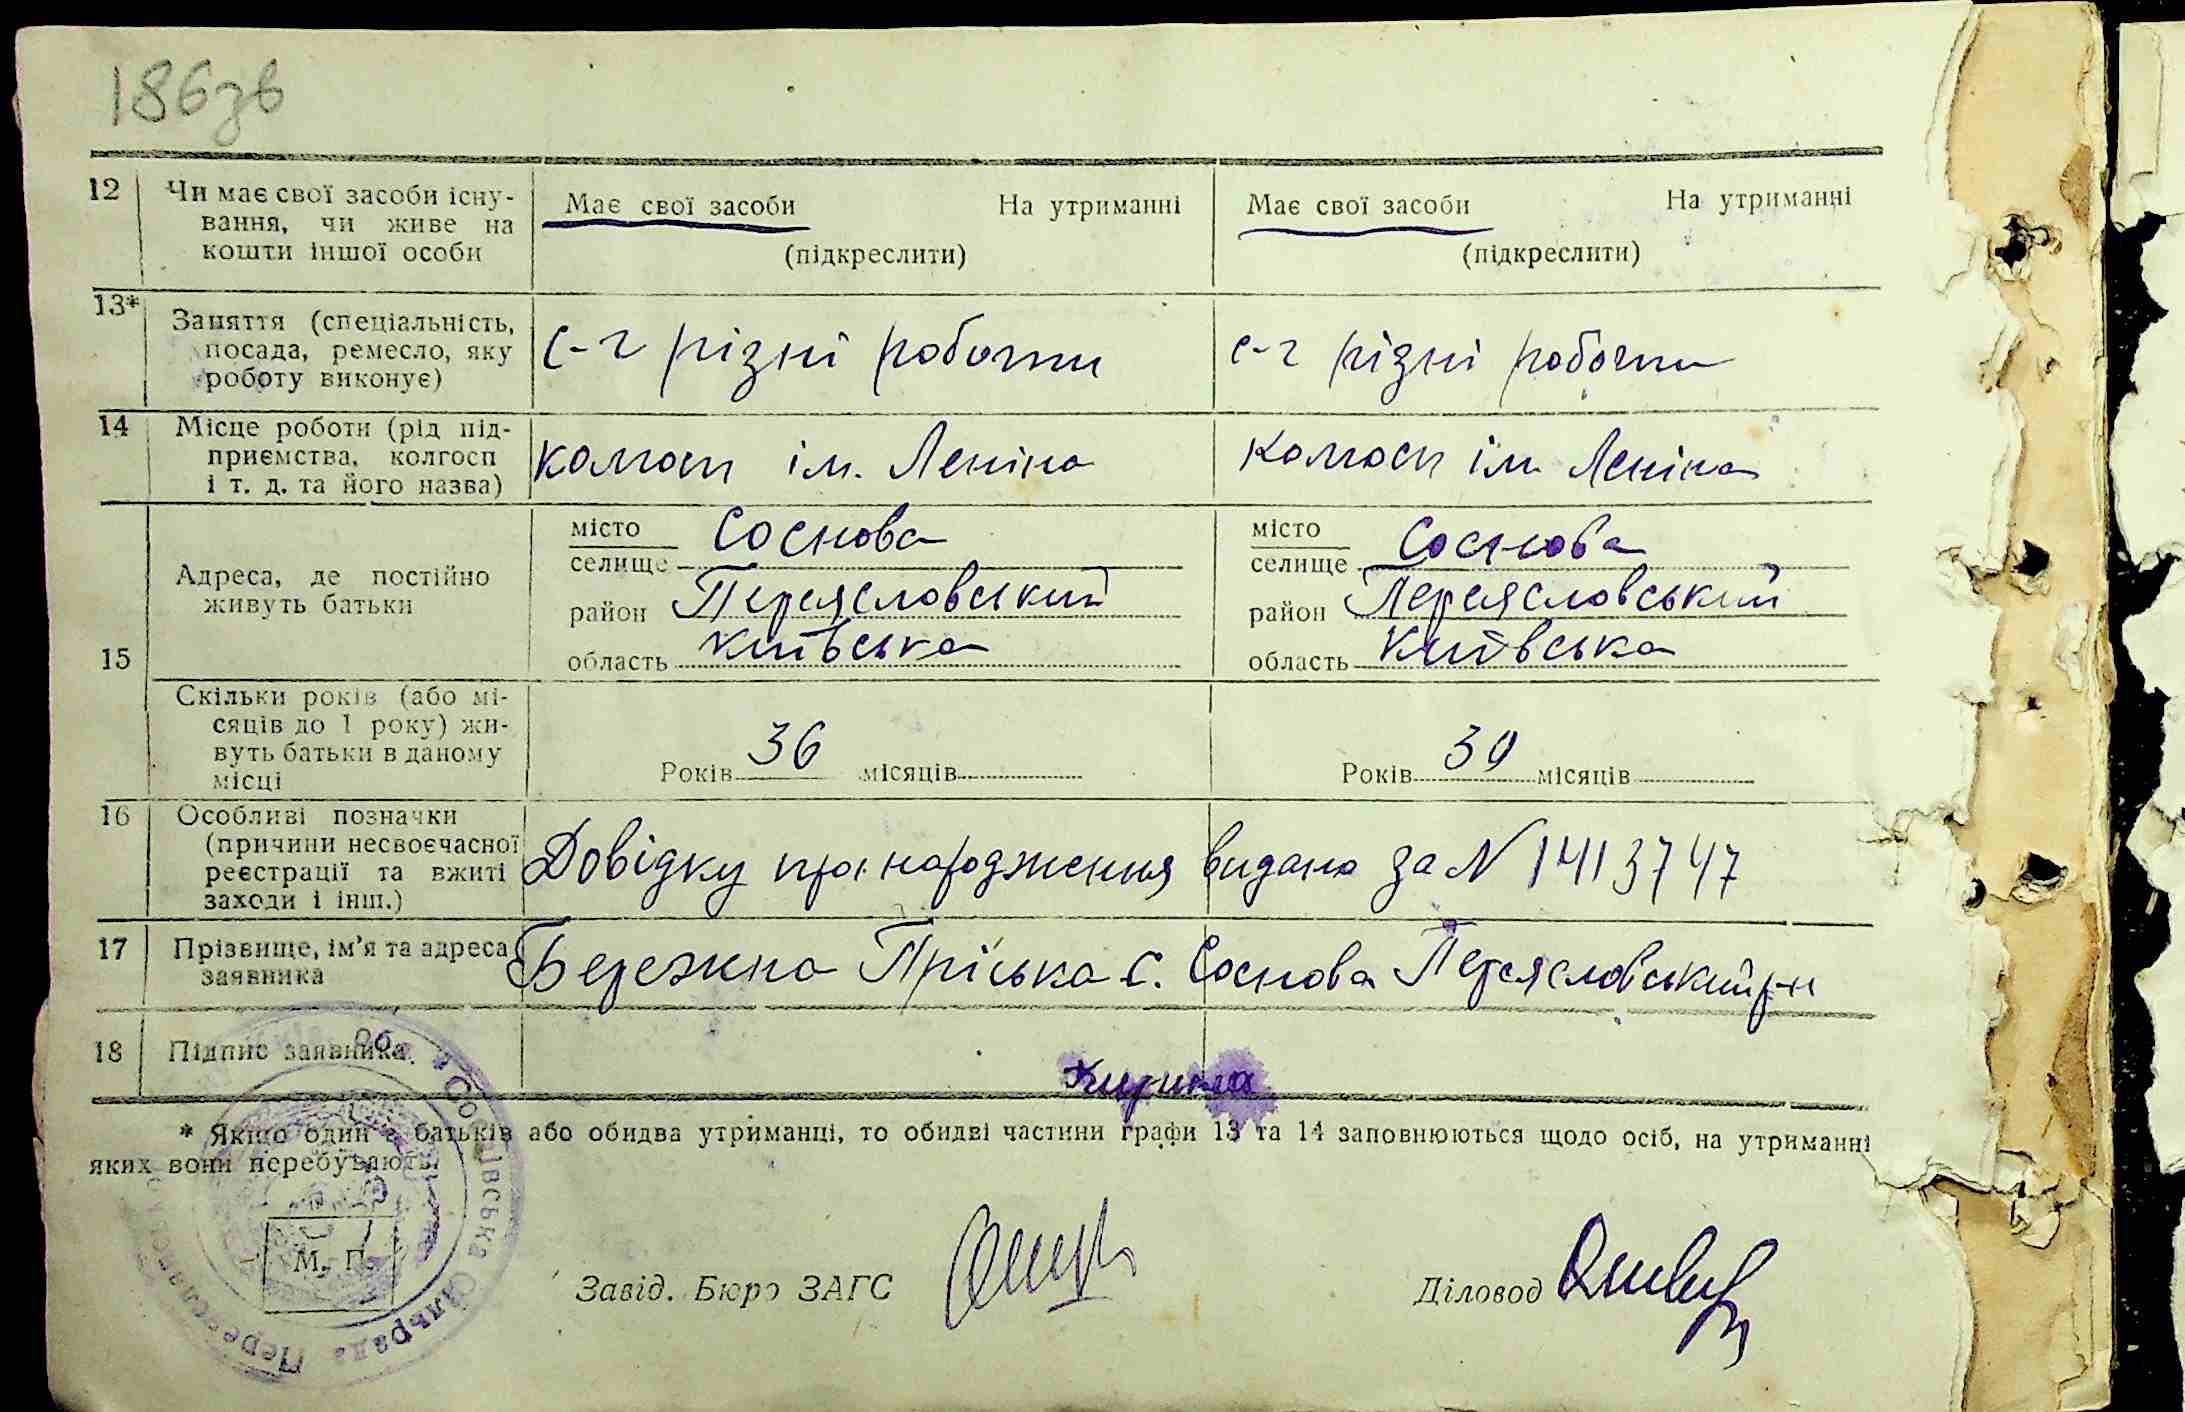 186зв
12 Чи має свої засоби існу-
вання, чи живе на
кошти іншої особи
Має свої засоби На утриманні
(підкреслити)
Має свої засоби На утриманні
(підкреслити)
13* Заняття (спеціальність,
посада, ремесло, яку
роботу виконує)
с-г різні роботи
с-г різні роботи
14 Місце роботи (рід під-
приємства, колгосп
і т. д. та його назва)
колгосп ім. Леніна
колгосп ім Леніна
15
Адреса, де постійно
живуть батьки
місто
селище Соснова
район Переясловський
область Київська
місто
селище Соснова
район Переясловський
область Київська
Скільки років (або мі-
сяців до 1 року) жи-
вуть батьки в даному
місці
Років 36 місяців
Років 39 місяців
16 Особливі позначки
(причини несвоєчасної
реєстрації та вжиті
заходи і інш.)
Довідку про народження видано за N 1413747
17 Прізвище, ім'я та адреса
заявника
Бережна Пріська с. Соснова Переясловський р-н
18 Підпис заявника
* Якщо один з батьків або обидва утриманці, то обидві частини графи 13 та 14 заповнюються щодо осіб, на утриманні
яких вони перебувають.
М. П.
Завід. Бюро ЗАГС
Діловод
обл. * Со івська сільрада Переяслав